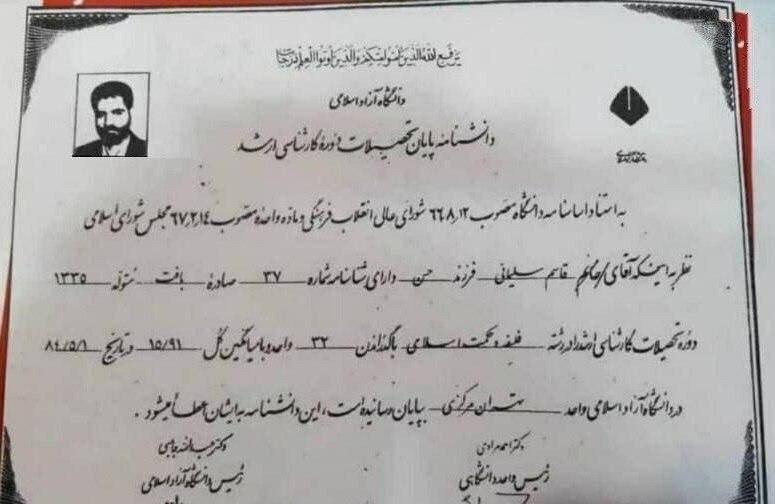 یرفع الله الذین آمنوا منکم والذین اوتوا العلم درجات
دانشگاه آزاد اسلامی
دانشنامه پایان تحصیلات دوره کارشناسی ارشد
به استناد اساسنامه دانشگاه مصوب ۶۶٫۸٫۱۲ شورای عالی انقلاب فرهنگی و ماده واحده مصوب ۶۷٫۲٫۱۴ مجلس شورای اسلامی
نظر به اینکه آقای/خانم قاسم سلیمانی فرزند حسن دارای شناسنامه شماره ۳۷ صادره بافت متولد ۱۳۳۵
دوره تحصیلات کارشناسی ارشد را در رشته فلسفه و حکمت اسلامی با گذراندن ۳۲ واحد و با میانگین کل ۱۵/۹۱ و در تاریخ ۸۴/۵/۱
در دانشگاه آزاد اسلامی واحد تهران مرکزی بپایان رسانیده است، این دانشنامه به ایشان اعطا میشود.
دکتر احمد مرادی
دکتر عبدالله جاسبی
رئیس واحد دانشگاهی
رئیس دانشگاه آزاد اسلامی